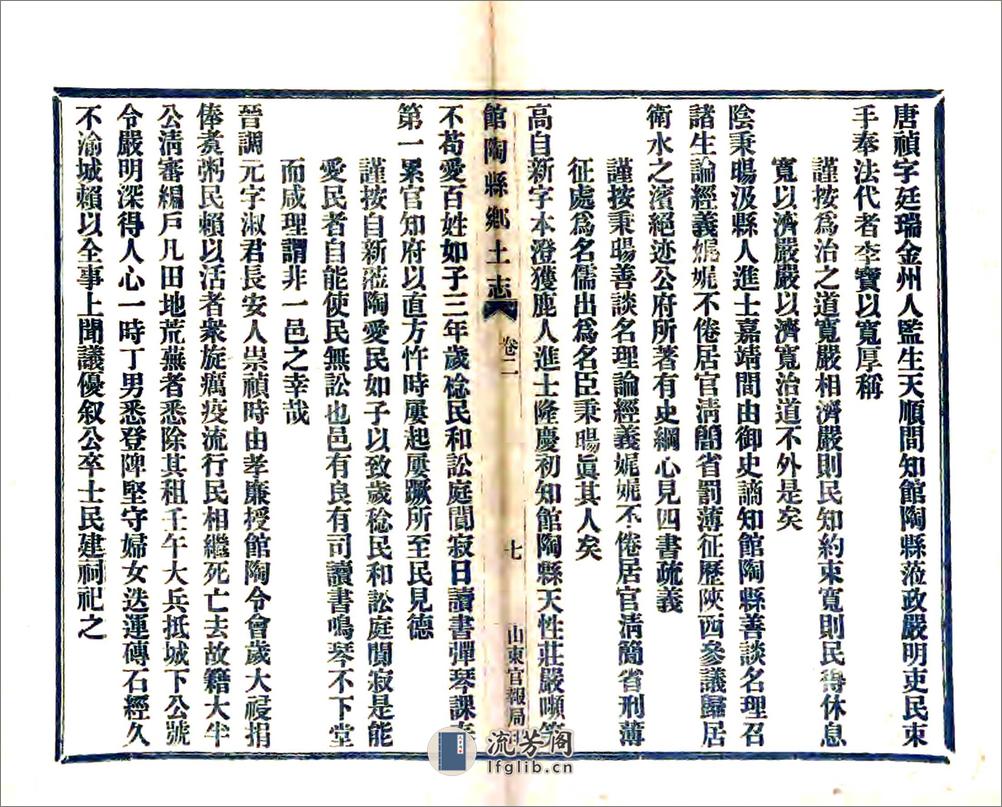 唐禎字廷瑞金州人監生天順間知館陶縣蒞政嚴明吏民束
手奉法代者李寶以寬厚稱
謹按爲治之道寬嚴相濟嚴則民知約束寬則民得休息
寬以濟嚴嚴以濟寬治道不外是矣
陰秉暘汲縣人進士嘉靖間由御史謫知館陶縣善談名理召
諸生論經義娓娓不倦居官清簡省罰薄征歷陝西參議歸居
衛水之濱絕迹公府所著有史綱心見四書疏義
謹按秉暘善談名理論經義娓娓不倦居官清簡省刑薄
征處爲名儒出爲名臣秉暘眞其人矣
高自新字本澄獲鹿人進士隆慶初知館陶縣天性莊嚴嚬笑
館陶縣鄉土志
卷二
七
山東官報局
不苟愛百姓如子三年歲稔民和訟庭閴寂日讀書彈琴課
第一累官知府以直方忤時屢起屢蹶所至民見德
謹按自新蒞陶愛民如子以致歲稔民和訟庭闃寂是能
愛民者自能使民無訟也邑有良有司讀書鳴琴不下堂
而咸理謂非一邑之幸哉
晉調元字淑君長安人崇禎時由孝廉授館陶令會歲大祲捐
俸煮粥民賴以活者衆旋癘疫流行民相繼死亡去故籍大半
公淸審編戸凡田地荒蕪者悉除其租壬午大兵抵城下公號
令嚴明深得人心一時丁男悉登陴堅守婦女迭運磚石經久
不渝城賴以全事上聞議優叙公卒士民建祠祀之
流芳阁
lfglib.cn